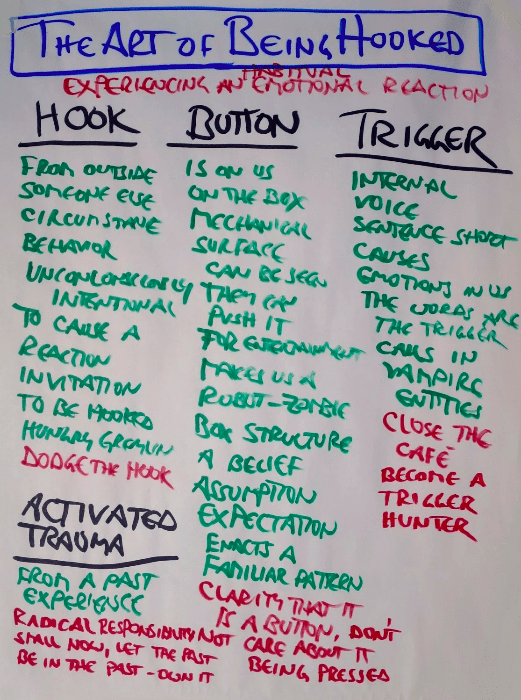 THE ART OF BEING HOOKED
HABITUAL
EXPERIENCING AN EMOTIONAL REACTION
HOOK
FROM OUTSIDE
SOMEONE ELSE
CIRCUMSTANCE
BEHAVIOR
UNCONCONSCIOUSLY
INTENTIONAL
TO CAUSE A
REACTION
INVITATION
TO BE HOOKED
HUNGRY GREMLIN
DODGE THE HOOK
ACTIVATED
TRAUMA
FROM A PAST
EXPERIENCE
RADICAL RESPONSIBILITY NOT
SMALL NOW, LET THE PAST
BE IN THE PAST - OWN IT
BUTTON
IS ON US
ON THE BOX
MECHANICAL
SURFACE
CAN BE SEEN
THEY CAN
PUSH IT
FOR ENTERTAINMENT
MAKES US A
ROBOT-ZOMBIE
BOX STRUCTURE
A BELIEF
ASSUMPTION
EXPECTATION
ENACTS A
FAMILIAR PATTERN
CLARITY THAT IT
IS A BUTTON, DON'T
CARE ABOUT IT
BEING PRESSED
TRIGGER
INTERNAL
VOICE
SENTENCE SHORT
CAUSES
EMOTIONS IN US
THE WORDS ARE
THE TRIGGER
CALLS IN
VAMPIRE
ENTITIES
CLOSE THE
CAFÉ
BECOME A
TRIGGER
HUNTER